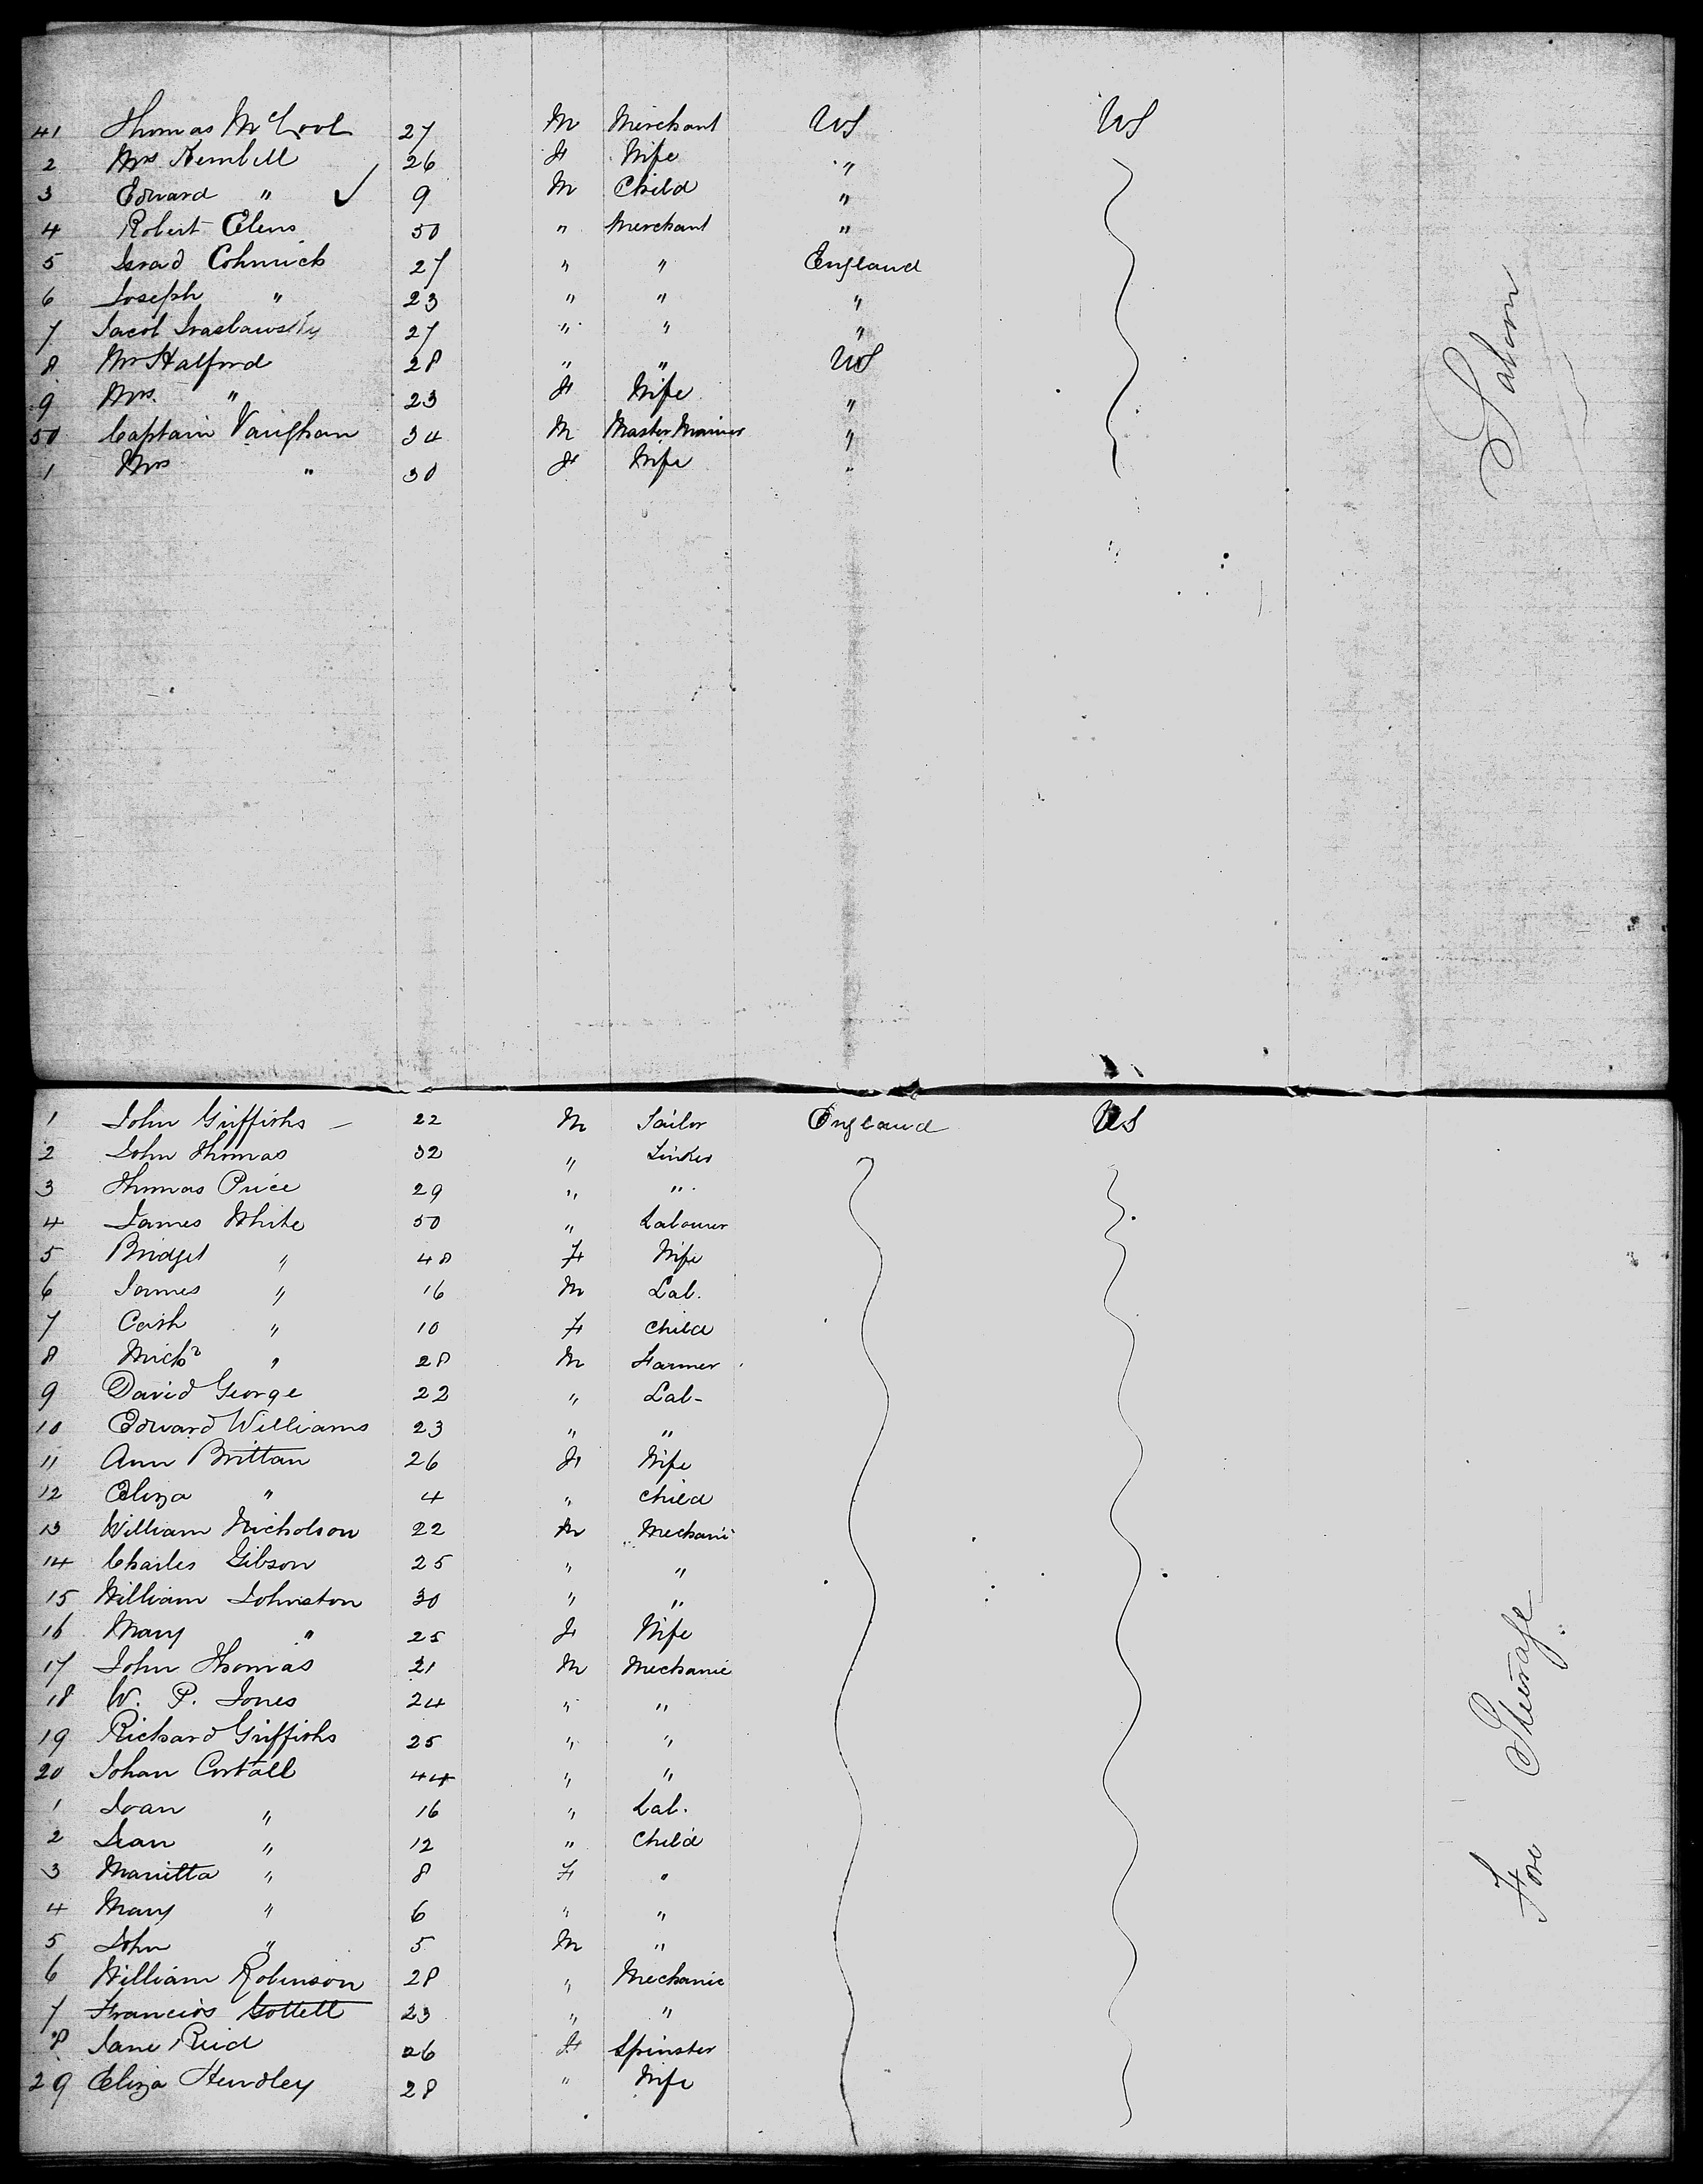 41 Thomas McCool 27 M Merchant US US
2 Mrs Kembell 26 F Wife "
3 Edward " ✓ 9 M Child "
4 Robert Clens 50 " Merchant "
5 Israd Cohnnick 27 " " England
6 Joseph " 23 " " "
7 Jacob 27 " " "
8 Mr Halford 28 " " US
9 Mrs " 23 F Wife "
50 Captain Vaughan 34 M Master Mariner "
1 Mrs " 30 F Wife "
Saloon
1 John Griffiths 22 M Tailor England US
2 John Thomas 32 " Tinker
3 Thomas Price 29 " "
4 James White 50 " Labourer
5 Bridget " 48 F Wife
6 James " 16 M Lab.
7 Cath " 10 F Child
8 Michl " 28 M Farmer
9 David George 22 " Lab-
10 Edward Williams 23 " "
11 Ann Brittan 26 F Wife
12 Eliza " 4 " Child
13 William Nicholson 22 M Mechanic
14 Charles Gibson 25 " "
15 William Johnston 30 " "
16 Mary " 25 F Wife
17 John Thomas 21 M Mechanic
18 W. P. Jones 24 " "
19 Richard Griffiths 25 " "
20 Johan Cortall 44 " "
1 Joan " 16 " Lab.
2 Jean " 12 " Child
3 Marietta " 8 F "
4 Mary " 6 " "
5 John " 5 M "
6 William Robinson 28 " Mechanic
7 Francios Gottell 23 " "
8 Jane Reid 26 F Spinster
29 Eliza Hendley 28 " Wife
Fore Steerage